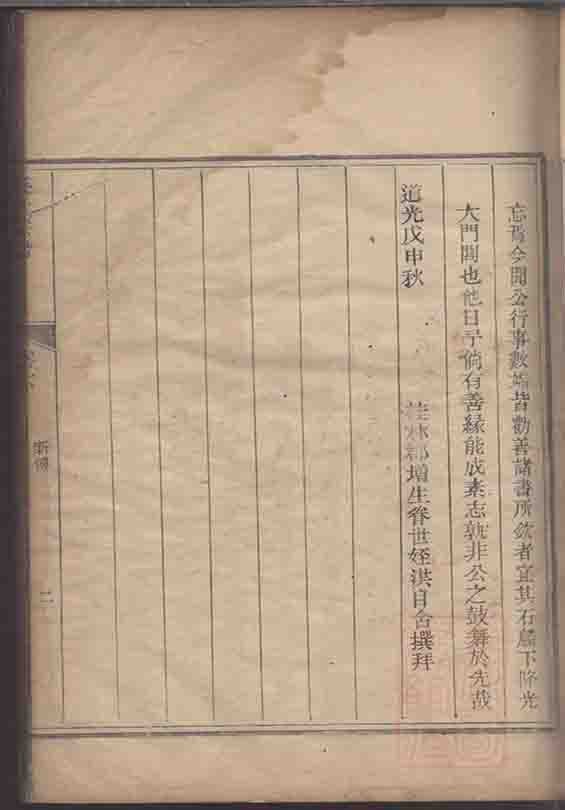 忘焉今聞公行事數端皆勸善諸書所欽者宜其石麟下降光
大門閭也他日予倘有善緣能成素志孰非公之鼓舞於先哉
道光戊申秋
桂林郡增生眷世姪洪自含撰拜
新傳
二